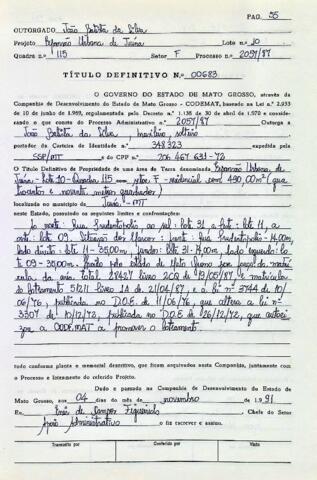 PAG. 55
OUTORGADO João Batista da Silva
Projeto Expansão Urbana de Juína Lote n.o 10
Quadra n.o 115 Setor F Processo n.o 2057/87
TÍTULO DEFINITIVO N.o 00683
O GOVERNO DO ESTADO DE MATO GROSSO, através da
Companhia de Desenvolvimento do Estado de Mato Grosso - CODEMAT, baseado na Lei n.o 2.933
de 10 de junho de 1969, regulamentada pelo Decreto n.o 1.138 de 30 de abril de 1970 e conside-
rando-se o que consta do Processo Administrativo n.o 2057/87 Outorga a
João Batista da Silva brasileiro solteiro
portador da Carteira de Identidade n.o 348323 expedida pela
SSP/MT e do CPF n.o 206 467 631-72
O Título Definitivo de Propriedade de uma área de Terra denominada Expansão Urbana de
Juína - lote 10 - Quadra 115 setor F - residencial com 490,00 m² (qua
trocentos e noventa metros quadrados)
localizada no município de Juína - MT
neste Estado, possuindo os seguintes limites e confrontações:
ao norte: Rua ao sul: lote 31 a leste: lote 11, a
oeste: lote 09. frente: Rua 14,00m,
lado direito: lote 11 - 35,00m, fundos: lote 31 - 14,00m, lado esquerdo: lo
te 09 - 35,00m.
total 28427 livro 2CQ de 19/05/87, e matrícula
do loteamento 51211 livro 1A de 21/04/87, e a lei nº 3744 de 10/
06/76, publicada no D.O.E. de 11/06/76, que altera a lei nº
3307 de 18/12/72, publicada no D.O.E. de 26/12/72, que autori
za a CODEMAT a promover o loteamento.
tudo conforme planta e memorial descritivo, que ficam arquivados nesta Companhia, juntamente com
o Processo e lotamento do referido Projeto.
Dado e passado na Companhia de Desenvolvimento do Estado de
Mato Grosso, aos 04 dias do mês de novembro de 1.991
Eu, de Campos Figueiredo, Chefe do Setor
Apoio Administrativo o fiz escrever e assino.
Transcrito por Conferido por Visto